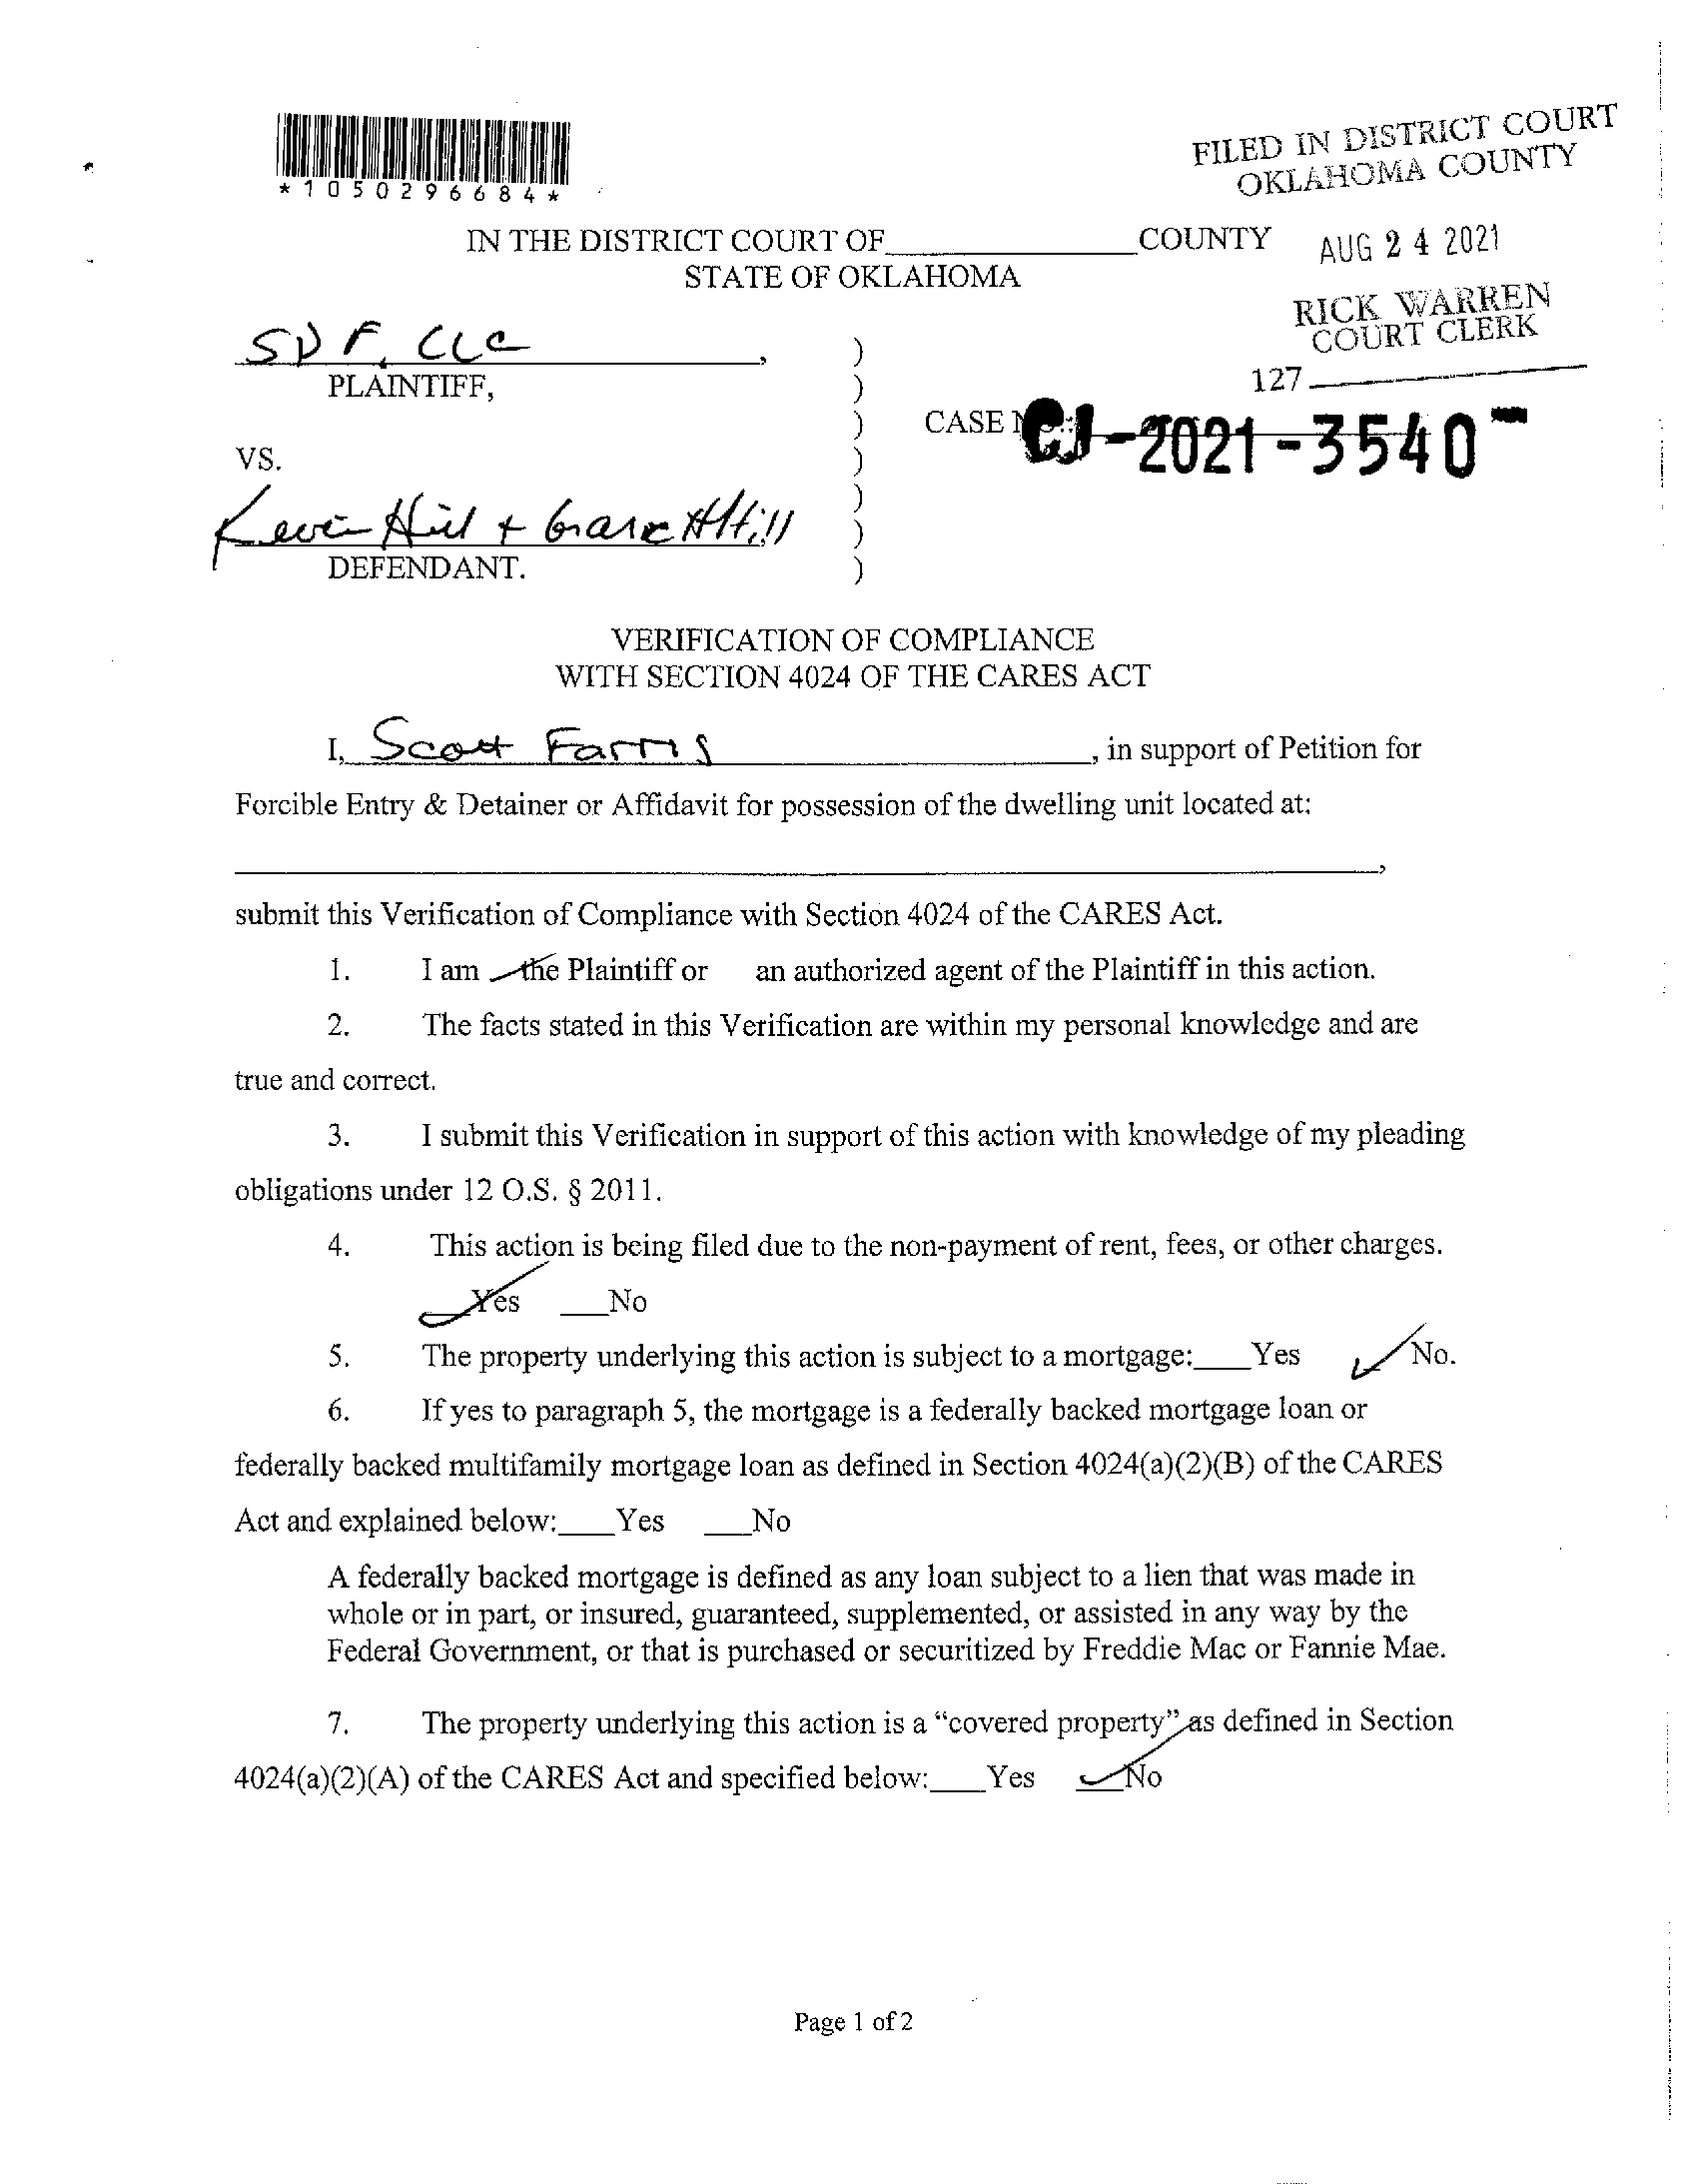 *1050296684*
FILED IN DISTRICT COURT
OKLAHOMA COUNTY
IN THE DISTRICT COURT OF____________COUNTY
AUG 24 2021
STATE OF OKLAHOMA
RICK WARREN
COURT CLERK
SDF, LLC,
PLAINTIFF,
127
CASE NO.: CJ-2021-3540
VS.
Kevin Hill + Hill
DEFENDANT.
VERIFICATION OF COMPLIANCE
WITH SECTION 4024 OF THE CARES ACT
I, Scott Farris, in support of Petition for
Forcible Entry & Detainer or Affidavit for possession of the dwelling unit located at:
____________,
submit this Verification of Compliance with Section 4024 of the CARES Act.
1. I am ✓ the Plaintiff or an authorized agent of the Plaintiff in this action.
2. The facts stated in this Verification are within my personal knowledge and are
true and correct.
3. I submit this Verification in support of this action with knowledge of my pleading
obligations under 12 O.S. § 2011.
4. This action is being filed due to the non-payment of rent, fees, or other charges.
✓ Yes ___No
5. The property underlying this action is subject to a mortgage:___Yes ✓ No.
6. If yes to paragraph 5, the mortgage is a federally backed mortgage loan or
federally backed multifamily mortgage loan as defined in Section 4024(a)(2)(B) of the CARES
Act and explained below:___Yes ___No
A federally backed mortgage is defined as any loan subject to a lien that was made in
whole or in part, or insured, guaranteed, supplemented, or assisted in any way by the
Federal Government, or that is purchased or securitized by Freddie Mac or Fannie Mae.
7. The property underlying this action is a “covered property” as defined in Section
4024(a)(2)(A) of the CARES Act and specified below:___Yes ✓ No
Page 1 of 2